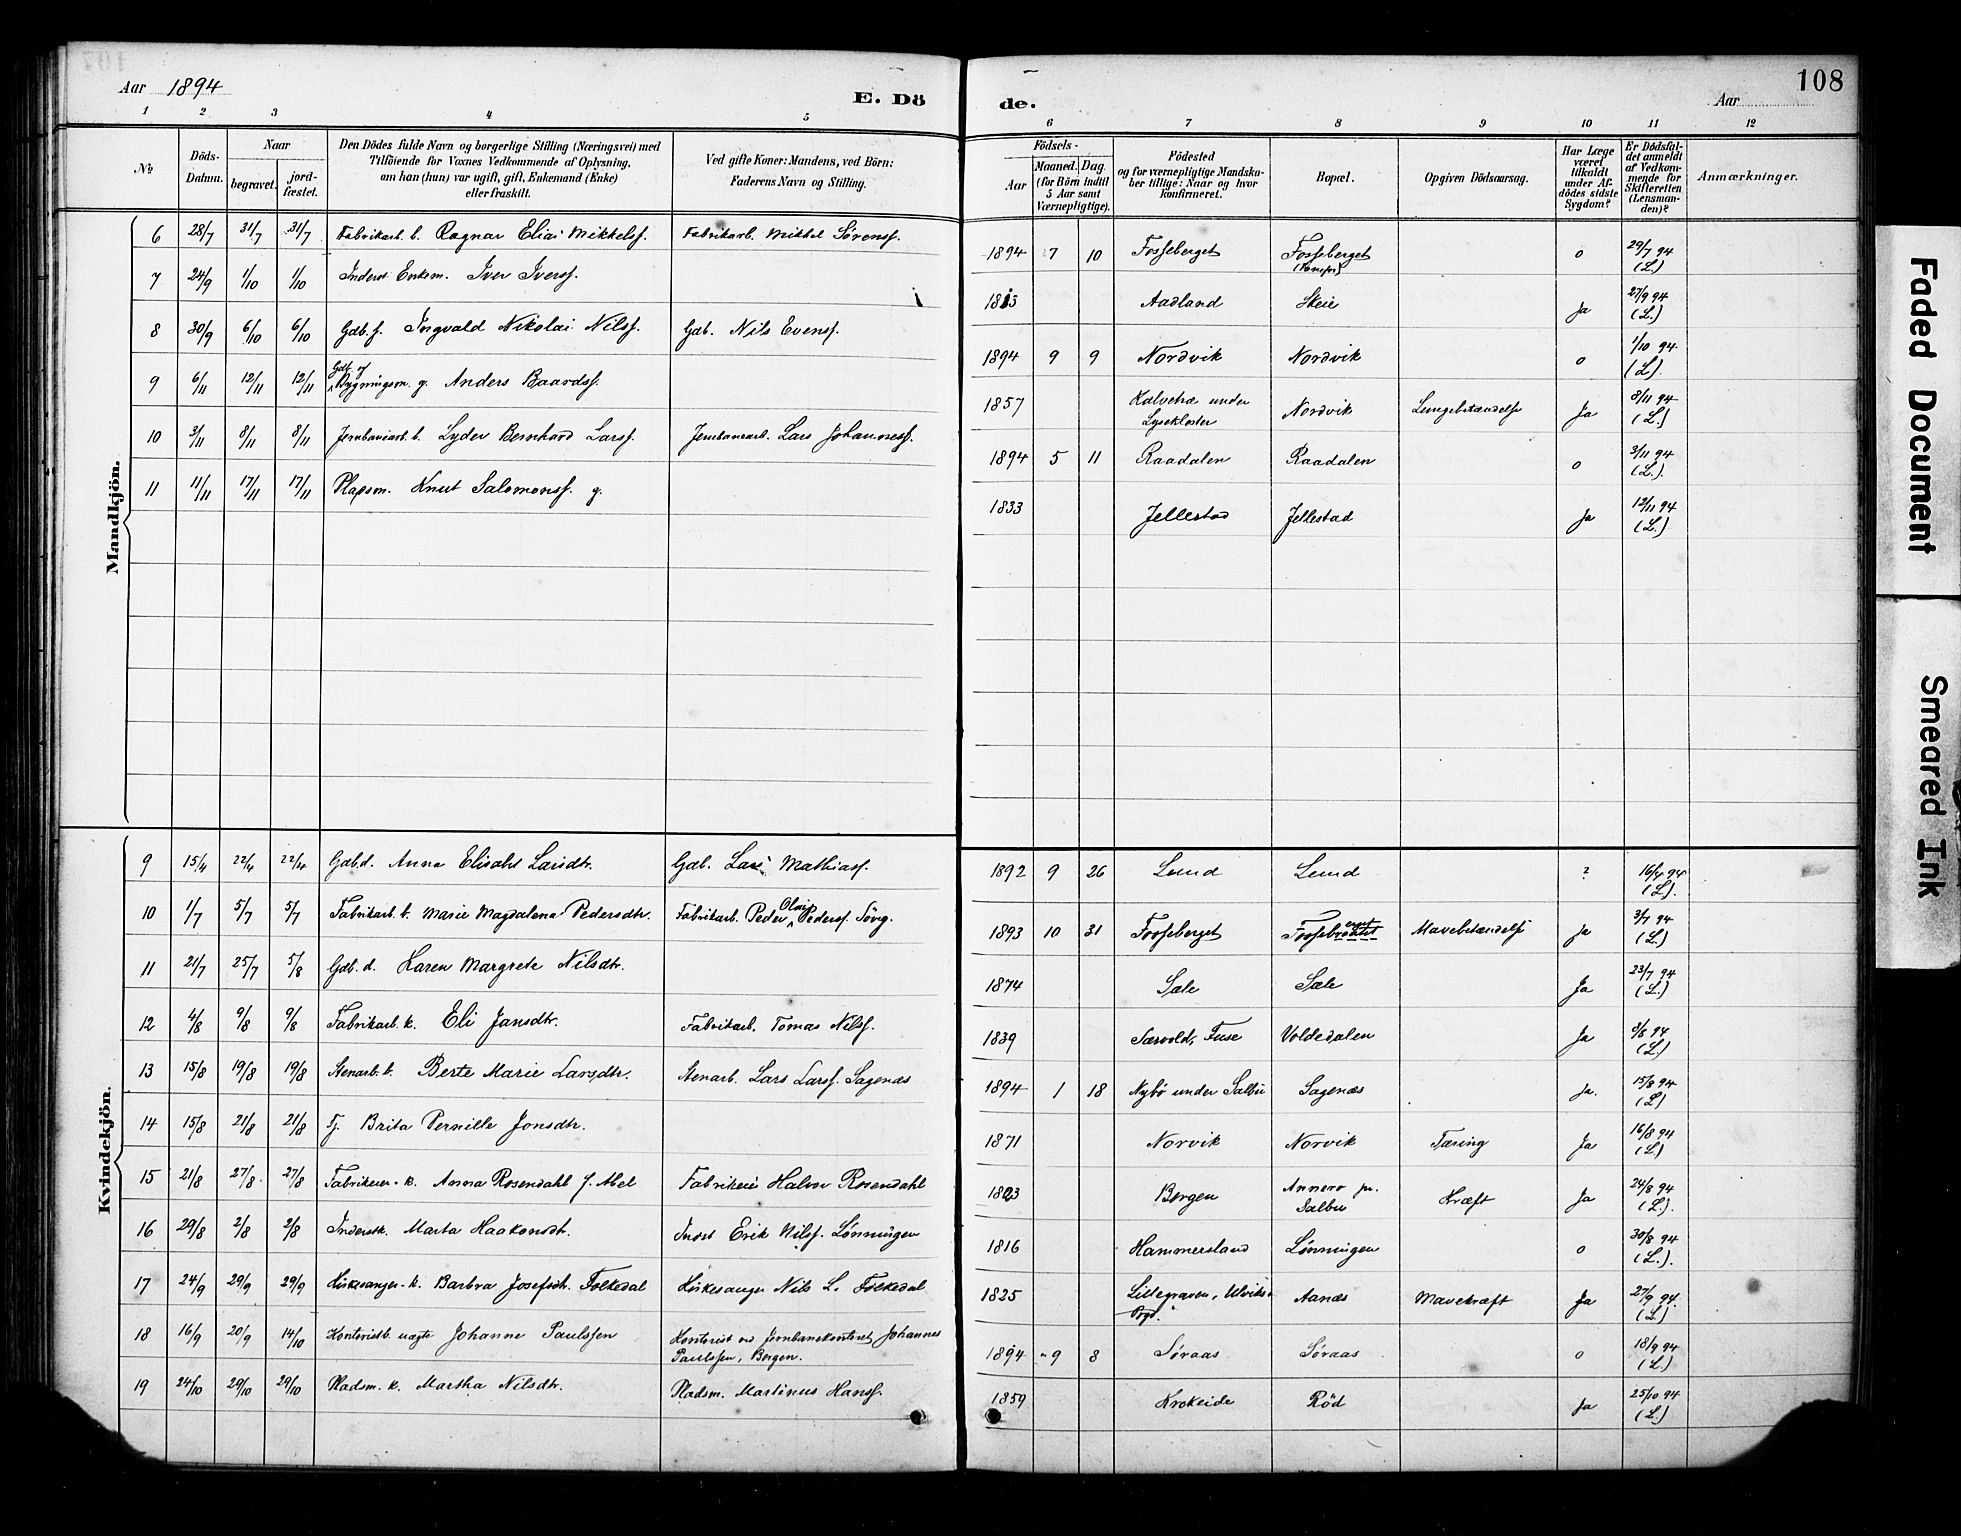 108
Aar 1894
E. Dö
de.
Aar
1 2 3 4 5 6 7 8 9 10 11 12
No
Döds-Datum.
Naar
begravet.
jord-fæstet.
Den Dödes fulde Navn og borgerlige Stilling (Næringsvei) med
Tilföiende for Voxnes Vedkommende af Oplysning,
om han (hun) var ugift, gift, Enkemand (Enke)
eller fraskilt.
Ved gifte Koner: Mandens, ved Börn:
Faderens Navn og Stilling.
Födsels-
Aar
Maaned. Dag.
(for Börn indtil
5 Aar samt
Værnepligtige).
Födested
og for værnepligtige Mandska-
ber tillige: Naar og hvor
konfirmeret.
Bopæl.
Opgiven Dödsaarsag.
Har Læge
været
tilkaldt
under Af-
dödes sidste
Sygdom?
Er Dödsfal-
det anmeldt
af Vedkom-
mende for
Skifteretten
(Lensman-
den)?
Anmærkninger.
Mandkjön.
6 28/7 31/7 31/7 Fabrikarb. b. Ragnar Elias Mikkelsf. Fabrikarb. Mikkel Sörensf. 1894 7 10 Fosseberget Fosseberget 0 29/7 94 (L.)
7 24/9 1/10 1/10 Inderst Enkem. Iver Iversf. 1813 Aadland Skeie Ja 27/9 94 (L.)
8 30/9 6/10 6/10 Gdb. s. Ingvald Nikolai Nilsf. Gdb. Nils Evensf. 1894 9 9 Nordvik Nordvik 0 1/10 94 (L).
9 6/11 12/11 12/11 Gdb. og Bygningsm. g. Anders Baardsf. 1857 Kalvetræ under Lysekloster Nordvik Lungebetændelse Ja 8/11 94 (L.)
10 3/11 8/11 8/11 Jernbanearb. b. Lyder Bernhard Larsf. Jernbanearb. Lars Johannesf. 1894 5 11 Raadalen Raadalen 0 3/11 94 (L.).
11 11/11 17/11 17/11 Pladsm. Knut Salomonsf. g. 1833 Jellestad Jellestad Ja 12/11 94 (L.)
Kvindekjön.
9 15/4 22/4 22/4 Gdb. d. Anna Elisabet Larsdtr. Gdb. Lars Mathiasf. 1892 9 26 Lund Lund ? 16/4 94 (L.)
10 1/7 5/7 5/7 Fabrikarb. b. Marie Magdalena Pedersdtr. Fabrikarb. Peder Olai Pedersf. 1893 10 31 Fosseberget Mavebetændelse Ja 3/7 94 (L.)
11 21/7 25/7 5/8 Gdb. d. Karen Margrete Nilsdtr. 1874 Sæle Sæle Ja 23/7 94 (L.)
12 4/8 9/8 9/8 Fabrikarb. k. Eli Jansdtr. Fabrikarb. Tomas Nilsf. 1839 Særvold, Fuse Voldedalen Ja 8/8 94 (L.)
13 15/8 19/8 19/8 Stenarb. b. Berte Marie Larsdtr. Stenarb. Lars Larsf. Sagenæs 1894 1 18 Nybö under Salbu Sagenæs Ja. 15/8 94 (L)
14 15/8 21/8 21/8 Tj. Brita Pernille Jonsdtr. 1871 Norvik Norvik Tæring Ja 16/8 94 (L)
15 21/8 27/8 27/8 Fabrikeier-k. Anna Rosendahl f. Abel Fabrikeier Halvor Rosendahl 1823 Bergen Annero pr. Salbu Kræft Ja 24/8 94 (L.).
16 29/8 2/8 2/8 Inderstk. Marta Haakonsdtr. Indst Erik Nilsf. Lönningen 1816 Hammersland Lönningen 0 30/8 94 (L.).
17 24/9 29/9 29/9 Kirkesanger-k. Barbra Josefsdtr. Folkedal Kirkesanger Nils L. Folkedal 1825 Lillegraven, Ulviks Prgd. Aanæs Mavekræft Ja 27/9 94. (L.)
18 16/9 20/9 14/10 Kontoristb. uægte Johanne Paulssen Kontorist ved Jernbanekontoret Johannes Paulssen, Bergen. 1894 9 8 Söraas Söraas 0 18/9 94 (L.)
19 24/10 29/10 29/10 Pladsm. k. Martha Nilsdtr. Pladsm. Martinus Hansf. 1859 Krokeide Röd Ja 25/10 94 (L.)
Faded Document
Smeared Ink